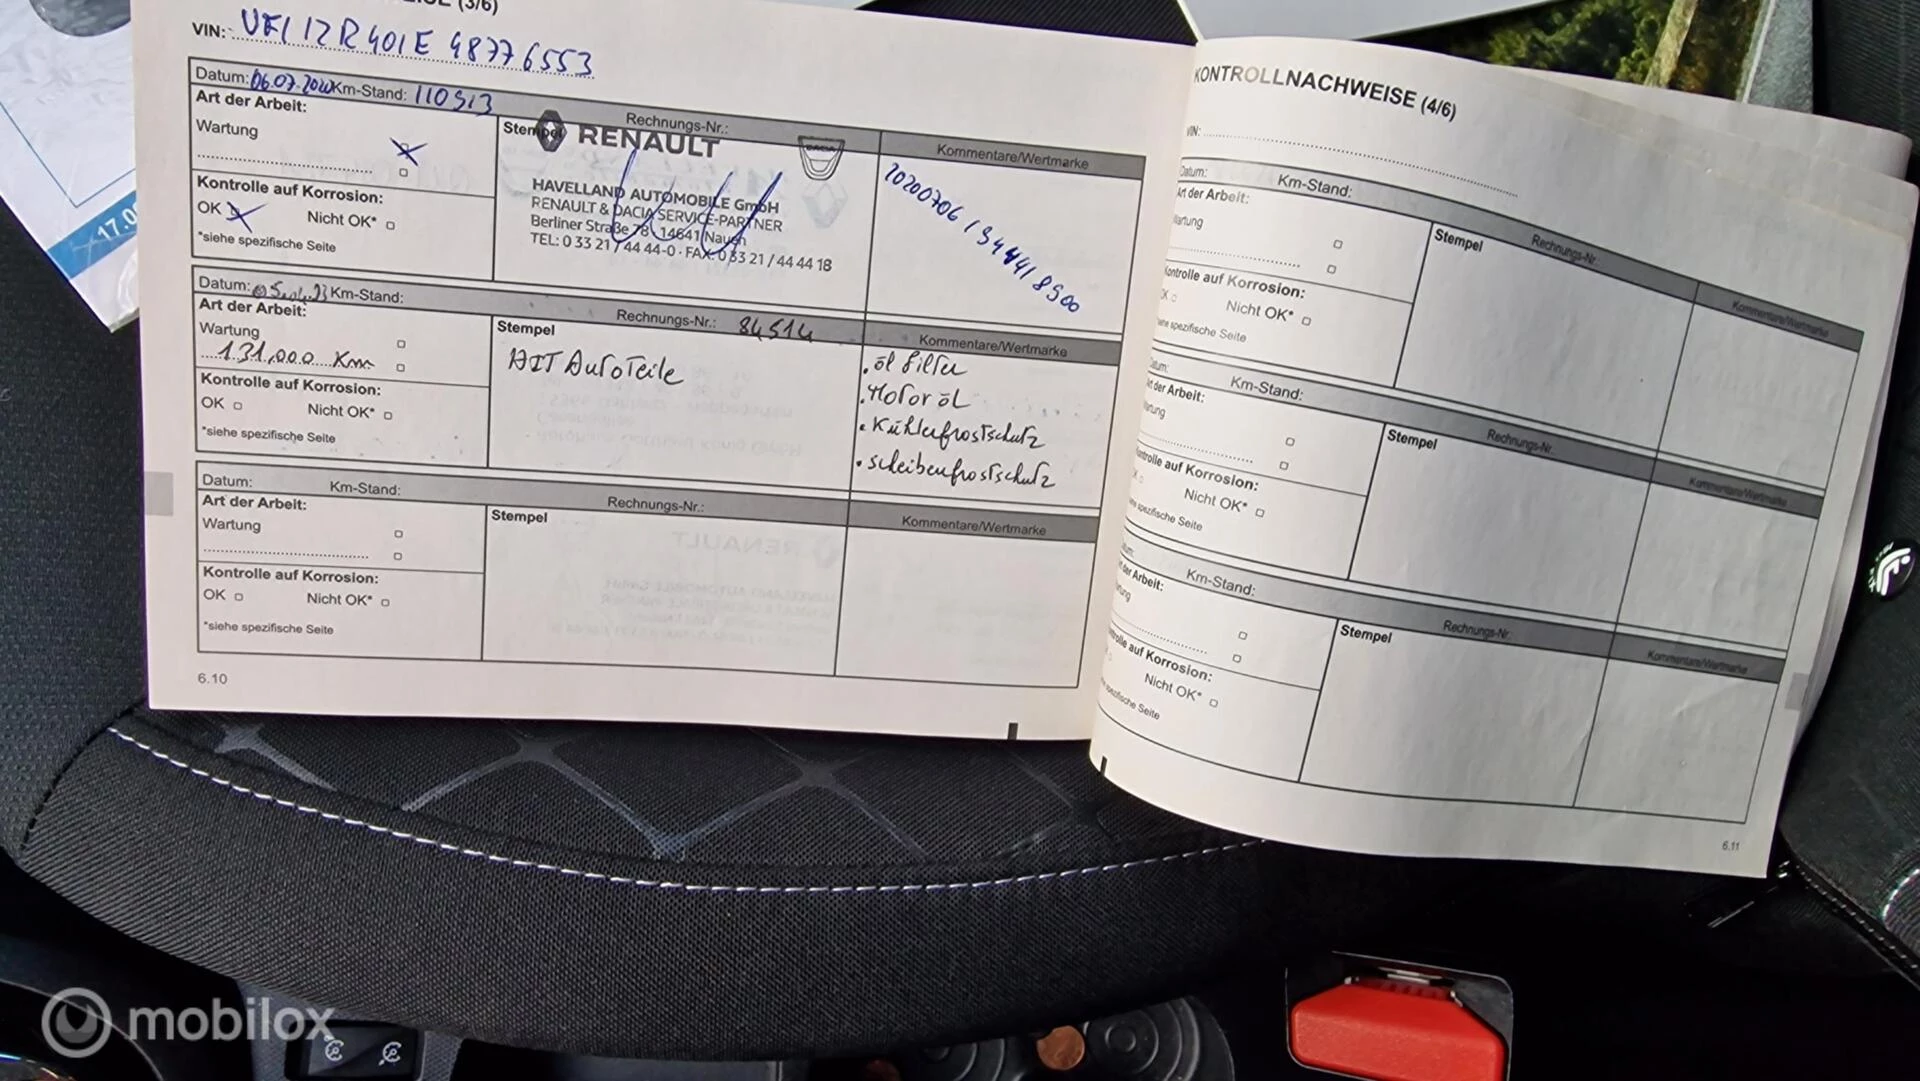 (3/6)
VIN: VF1 12R401E 48776553
Datum: 06.07.2020 Km-Stand: 110513
Rechnungs-Nr.:
Art der Arbeit:
Wartung
Kontrolle auf Korrosion:
OK Nicht OK*
*siehe spezifische Seite
Stempel
RENAULT
DACIA
HAVELLAND AUTOMOBILE GmbH
RENAULT & DACIA SERVICE-PARTNER
Berliner Straße 78 14641 Nauen
TEL: 0 33 21 / 44 44-0 · FAX: 0 33 21 / 44 44 18
Kommentare/Wertmarke
Datum: Km-Stand:
Rechnungs-Nr.: 84514
Art der Arbeit:
Wartung
131.000 Km
Kontrolle auf Korrosion:
OK Nicht OK*
*siehe spezifische Seite
Stempel
AIT AutoTeile
Kommentare/Wertmarke
. öl filter
. Motoröl
. Kühlerfrostschutz
. scheibenfrostschutz
Datum: Km-Stand:
Rechnungs-Nr.:
Art der Arbeit:
Wartung
Kontrolle auf Korrosion:
OK Nicht OK*
*siehe spezifische Seite
Stempel
Kommentare/Wertmarke
6.10
KONTROLLNACHWEISE (4/6)
VIN:
Datum: Km-Stand:
Rechnungs-Nr.:
Art der Arbeit:
Wartung
Kontrolle auf Korrosion:
Nicht OK*
siehe spezifische Seite
Stempel
Kommentare/Wertmarke
Km-Stand:
Rechnungs-Nr.
der Arbeit:
Kontrolle auf Korrosion:
Nicht OK*
spezifische Seite
Stempel
Kommentare/Wertmarke
Km-Stand:
Rechnungs-Nr.
der Arbeit:
auf Korrosion:
Nicht OK*
spezifische Seite
Stempel
Kommentare/Wertmarke
6.11
mobilox